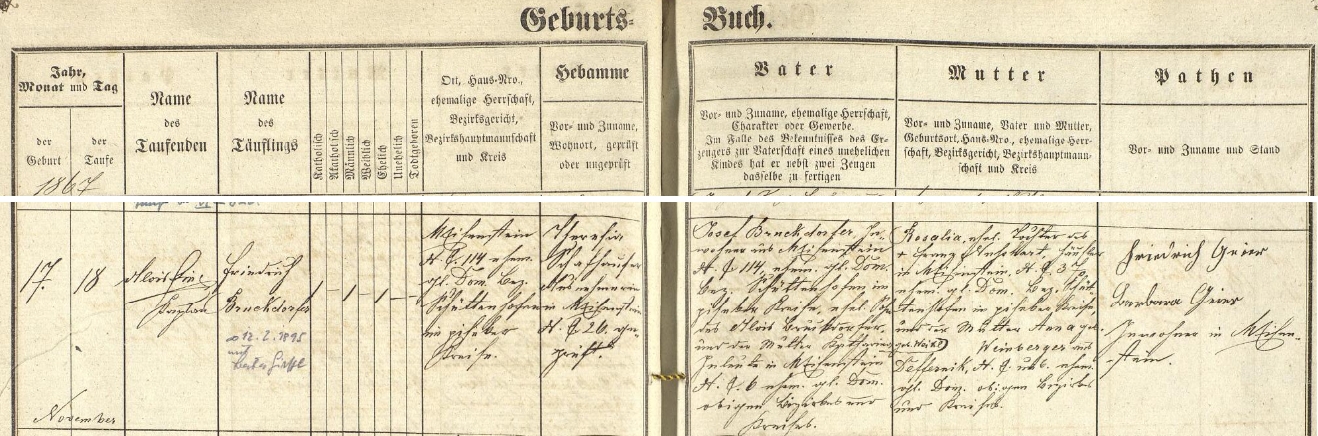 Geburts-
Buch.
Jahr,
Monat und Tag
der
Geburt
der
Taufe
1867
Name
des
Taufenden
Name
des
Täuflings
Katholisch
Akatholisch
Männlich
Weiblich
Ehelich
Unehelich
Todtgeboren
Ort, Haus-Nro.,
ehemalige Herrschaft,
Bezirksgericht,
Bezirkshauptmannschaft
und Kreis
Hebamme
Vor- und Zuname,
Wohnort, geprüft
oder ungeprüft
Vater
Vor- und Zuname, ehemalige Herrschaft,
Charakter oder Gewerbe.
Im Falle des Bekenntnisses des Er-
zeugers zur Vaterschaft eines unehelichen
Kindes hat er nebst zwei Zeugen
dasselbe zu fertigen
Mutter
Vor- und Zuname, Vater und Mutter,
Geburtsort, Haus-Nro., ehemalige Herr-
schaft, Bezirksgericht, Bezirkshauptmann-
schaft und Kreis
Pathen
Vor- und Zuname und Stand
17.
18
Alois
Kaplan
Friedrich
Bruckdorfer
12. 2. 1895
November
N. 114 ehem.
gl. Dom. Bez.
Schüttenhofen
im piseker
Kreise.
Theresia
in
N. 26, ge-
prüft
Josef Bruckdorfer, In-
wohner aus
N. 114, ehem. gl. Dom.
Bez. Schüttenhofen im
piseker Kreise, ehel.
des Alois Bruckdorfer,
und der Mutter Katharina geb. Weikl
Inleute in
N. 6 ehem. gl. Dom.
obigen Bezirkes und
Kreises.
Rosalia, ehel. Tochter des
in N. 37
ehem. gl. Dom. Bez. Schüt-
tenhofen im piseker Kreise,
und der Mutter Anna geb.
Weinberger aus
Deffernik, N. 6. ehem.
gl. Dom. obigen Bezirkes
und Kreises.
Friedrich Geier
Barbara Geier
Inwohner in
stein.